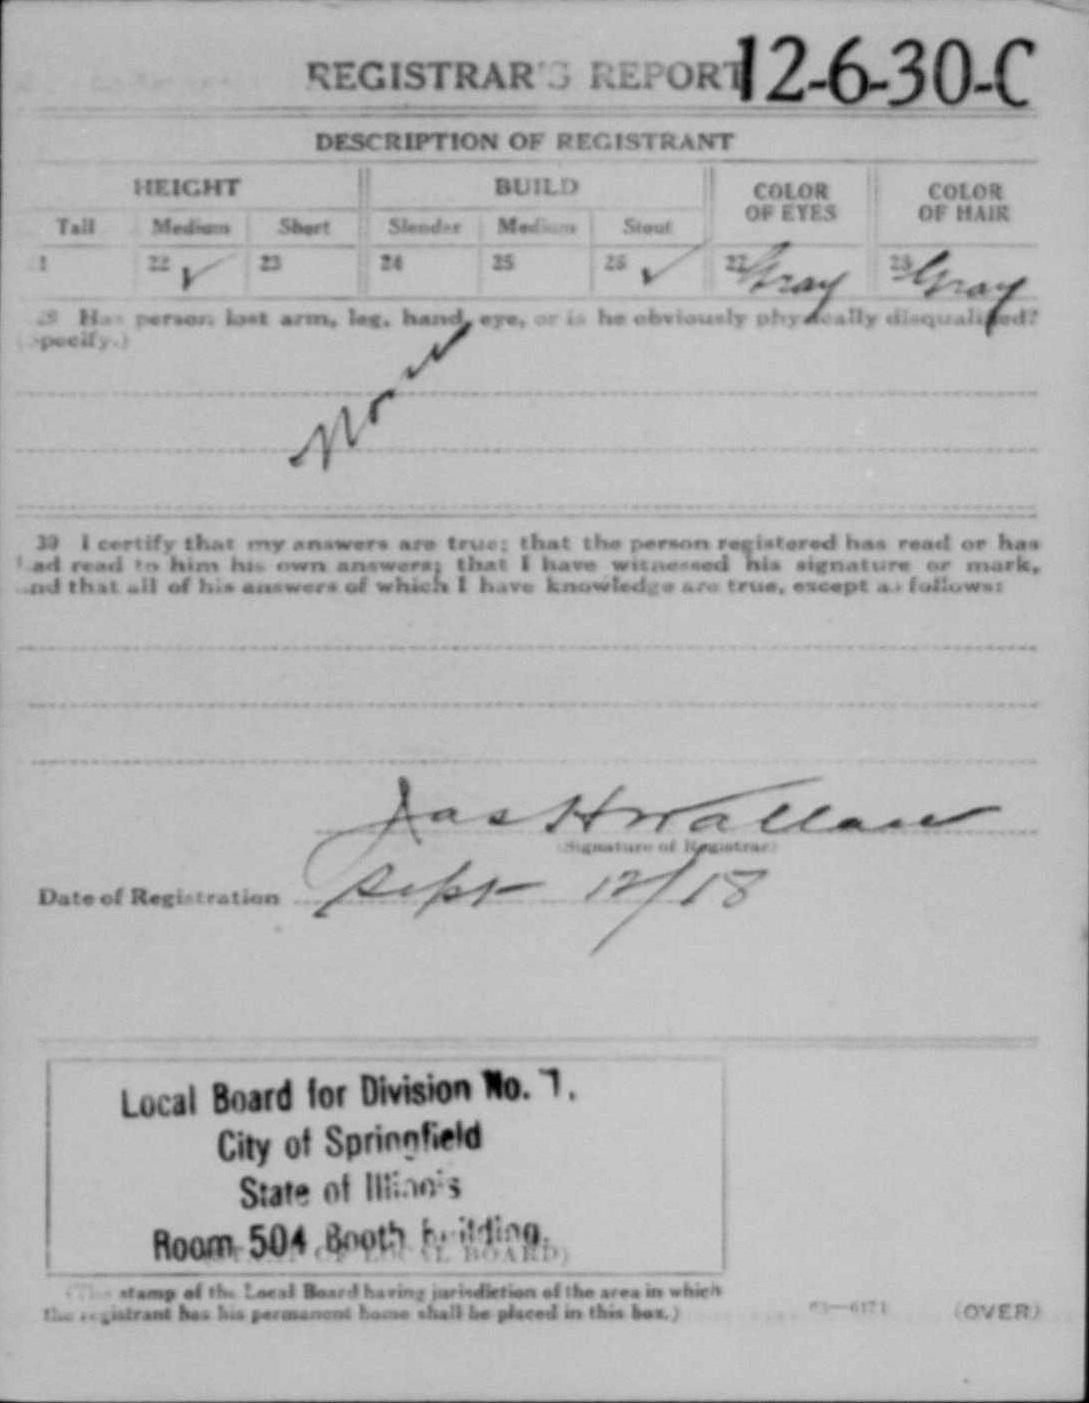 REGISTRAR'S REPORT 12-6-30-C
DESCRIPTION OF REGISTRANT
HEIGHT BUILD COLOR OF EYES COLOR OF HAIR
Tall Medium Short Slender Medium Stout
1 22 ✓ 23 24 25 26 ✓ 27 Gray 28 Gray
29 Has person lost arm, leg, hand, eye, or is he obviously physically disqualified?
(Specify.)
No
30 I certify that my answers are true; that the person registered has read or has
had read to him his own answers; that I have witnessed his signature or mark,
and that all of his answers of which I have knowledge are true, except as follows:
Jas H Wallace
(Signature of Registrar)
Date of Registration Sept 12/18
Local Board for Division No. 1.
City of Springfield
State of Illinois
Room 504 Booth Building.
(STAMP OF LOCAL BOARD)
(The stamp of the Local Board having jurisdiction of the area in which
the registrant has his permanent home shall be placed in this box.)
03—6171 (OVER)